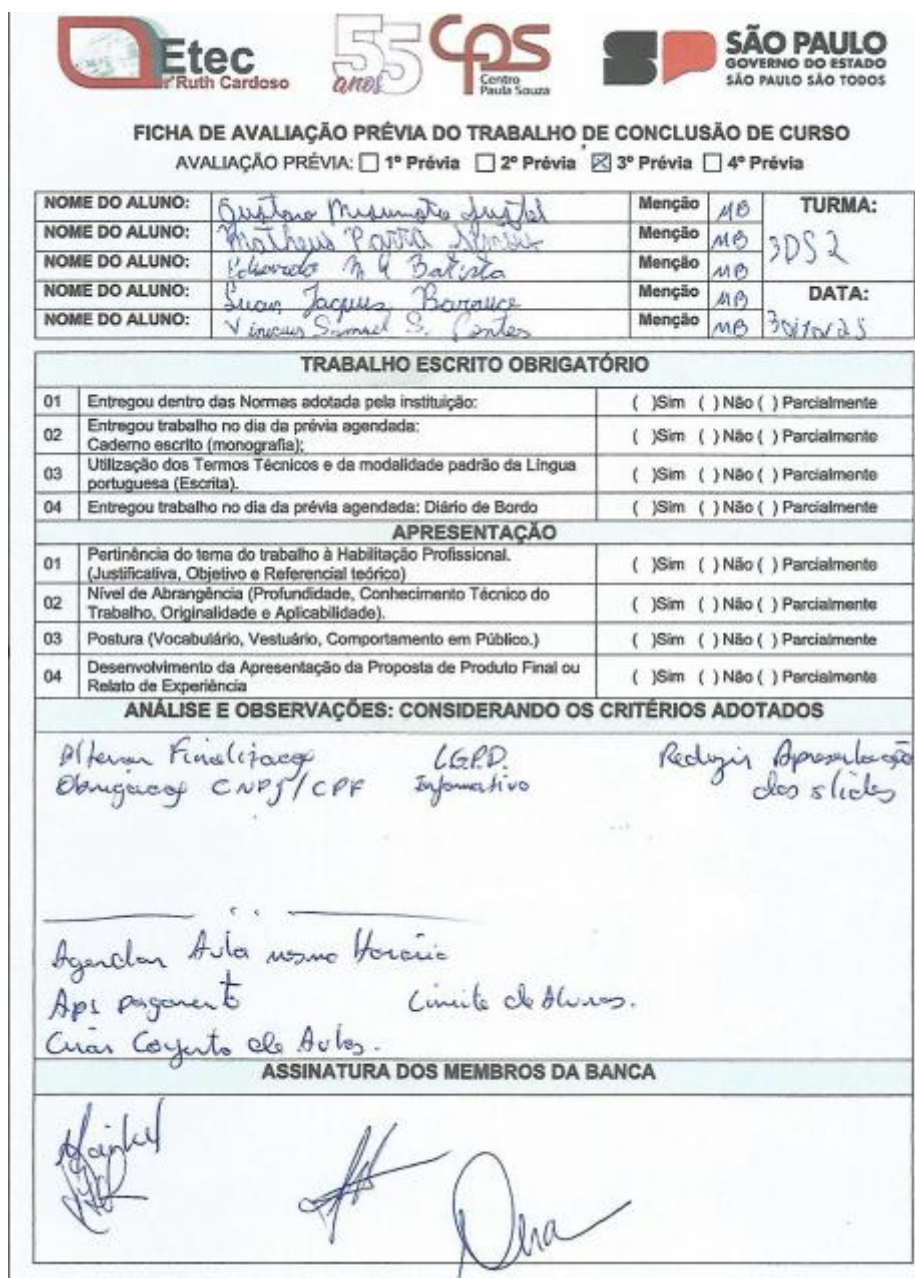 Etec
Drª Ruth Cardoso
55 anos
CPS
Centro
Paula Souza
SP
SÃO PAULO
GOVERNO DO ESTADO
SÃO PAULO SÃO TODOS
FICHA DE AVALIAÇÃO PRÉVIA DO TRABALHO DE CONCLUSÃO DE CURSO
AVALIAÇÃO PRÉVIA: ☐ 1º Prévia ☐ 2º Prévia ☒ 3º Prévia ☐ 4º Prévia
NOME DO ALUNO: Gustavo Menção MB TURMA:
NOME DO ALUNO: Matheus Parra Menção MB 3DS2
NOME DO ALUNO: Eduardo M Batista Menção MB
NOME DO ALUNO: Luan Jaques Menção MB DATA:
NOME DO ALUNO: Vinicius Samuel S. Menção MB 30/10/25
TRABALHO ESCRITO OBRIGATÓRIO
01 Entregou dentro das Normas adotada pela instituição: ( )Sim ( ) Não ( ) Parcialmente
02 Entregou trabalho no dia da prévia agendada:
Caderno escrito (monografia); ( )Sim ( ) Não ( ) Parcialmente
03 Utilização dos Termos Técnicos e da modalidade padrão da Língua
portuguesa (Escrita). ( )Sim ( ) Não ( ) Parcialmente
04 Entregou trabalho no dia da prévia agendada: Diário de Bordo ( )Sim ( ) Não ( ) Parcialmente
APRESENTAÇÃO
01 Pertinência do tema do trabalho à Habilitação Profissional.
(Justificativa, Objetivo e Referencial teórico) ( )Sim ( ) Não ( ) Parcialmente
02 Nível de Abrangência (Profundidade, Conhecimento Técnico do
Trabalho, Originalidade e Aplicabilidade). ( )Sim ( ) Não ( ) Parcialmente
03 Postura (Vocabulário, Vestuário, Comportamento em Público.) ( )Sim ( ) Não ( ) Parcialmente
04 Desenvolvimento da Apresentação da Proposta de Produto Final ou
Relato de Experiência ( )Sim ( ) Não ( ) Parcialmente
ANÁLISE E OBSERVAÇÕES: CONSIDERANDO OS CRITÉRIOS ADOTADOS
Alterar L.G.P.D. Reduzir Apresentação
CNPJ/CPF Informativo dos slides
Agendar Aula mesmo Horário
Api pagamento Limite de Alunos.
Criar Conjunto de Aulas.
ASSINATURA DOS MEMBROS DA BANCA